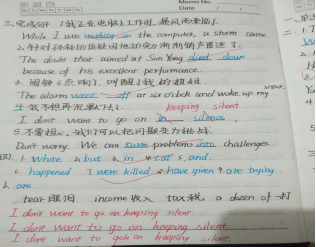 Memo No.
Date / /
三.完成句子 1.我正在电脑上工作时,暴风雨来临了.
While I was working on the computer, a storm came
2.针对孙杨的质疑因他的完
The doubt that aimed at Sun Yang died down
because of his excellent performance.
3. 闹钟6点响了,叫醒了我的
The alarm went off at six o'clock and woke up my
4. 我不想再沉默了. keeping silent
I don't want to go on in silence.
5.不要担心,我们可以把问题变为挑战.
Don't worry. We can turn problems into challenges
四. 1. White 2. but 3. in 4. 5. and
6. happened 7. were killed 8. have given 9. are trying
are
tear 眼泪 income 收入 tax 税 a dozen of 一打
I don't want to go on keeping silent
I don't want to go on keeping silent
I don't want to go on keeping silent.